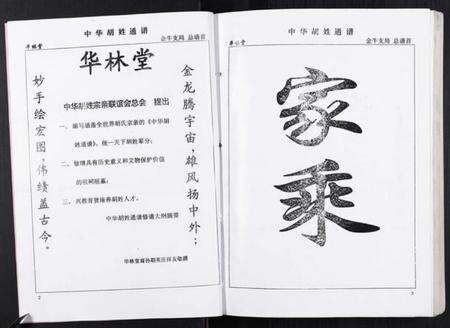 中华胡姓通谱
华林堂
金牛支局 总谱首
华林堂
金龙腾宇宙，雄风扬中外；
妙手绘宏图，伟绩盖古今。
中华胡姓宗亲联谊会总会 提出
一、编写涵盖全世界胡氏宗亲的《中华胡
姓通谱》，统一天下胡姓辈分；
二、修缮具有历史意义和文物保护价值
的祖祠祖墓；
三、兴教育贤培养胡姓人才。
中华胡姓通谱修谱大纲摘要
2
中华胡姓通谱
金牛支局 总谱首
家乘
3